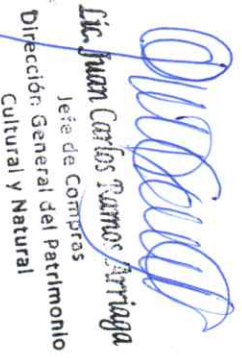 Lic. Juan Carlos Ramos Arriaga
Jefe de Compras
Dirección General del Patrimonio
Cultural y Natural